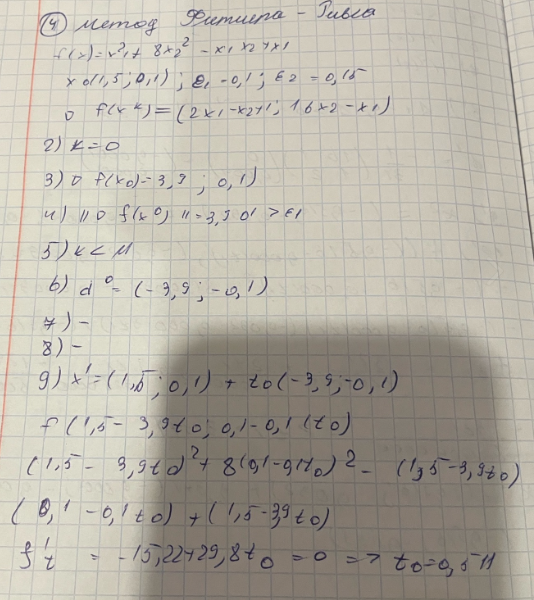 ④ метод Флетчера - Ривса
f(x)=x²1+ 8x2² - x1 x2 + x1
x0(1,5; 0,1) ; ε1 -0,1; ε2 = 0,15
∇ f(x^k) = (2x1-x2+1; 16x2-x1)
2) k=0
3) ∇ f(x0)-3,9 ; 0,1)
4) ||∇ f(x⁰) ||=3,901 > ε1
5) k < M
6) d⁰ = (-3,9; -0,1)
7) -
8) -
9) x¹=(1,5; 0,1) + t0(-3,9; -0,1)
f (1,5- 3,9t0; 0,1-0,1 (t0)
(1,5 - 3,9t0)²+ 8(0,1-0,1t0)² - (1,5-3,9t0)
(0,1 -0,1t0) + (1,5-3,9t0)
f't = -15,22+29,8t0 = 0 => t0=0,511